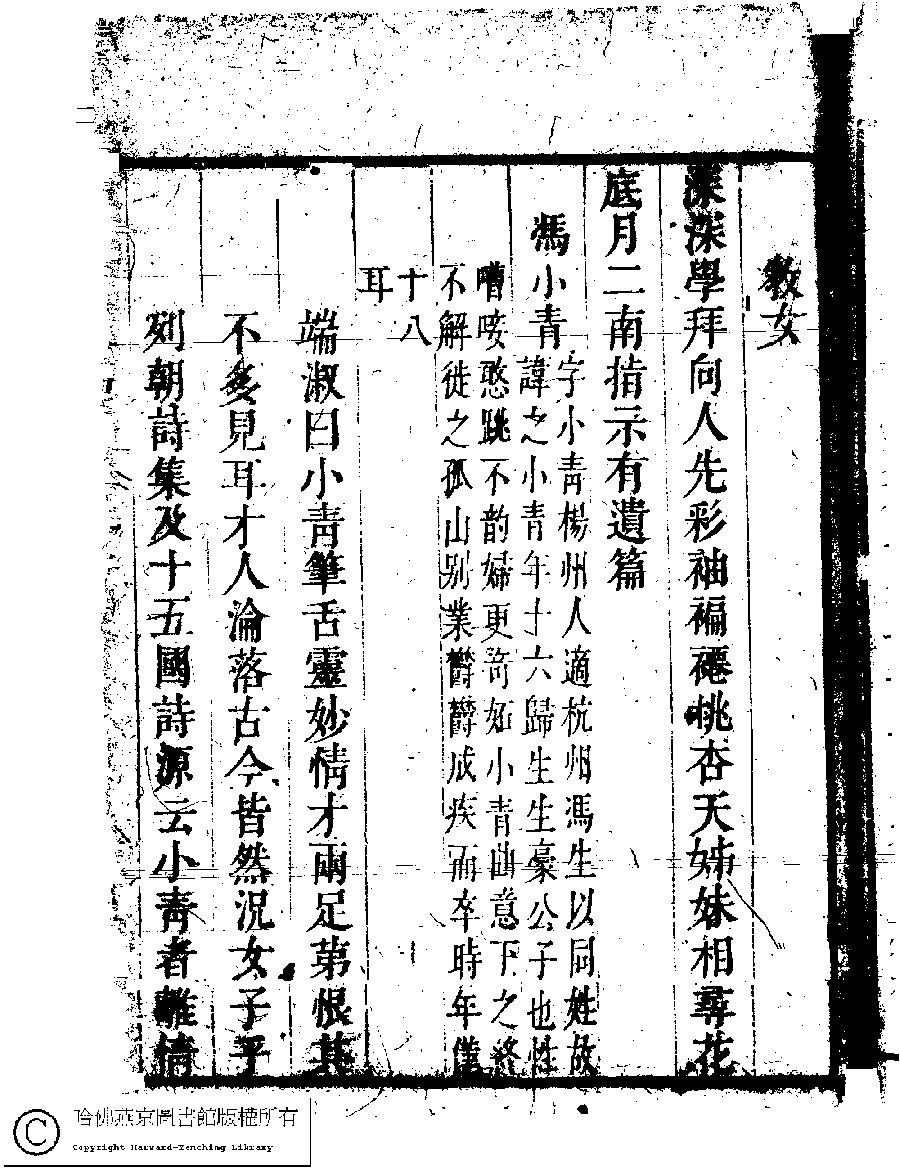 教女
深深學拜向人先彩袖褊褼桃杏天姊妹相尋花
底月二南指示有遺篇
馮小青
字小青楊州人適杭州馮生以同姓故
諱之小青年十六歸生生豪公子也性
嘈唼憨跳不韵婦更奇妬小青曲意下之終
不解徙之孤山别業欝欝成疾而卒時年僅
十八
耳
端淑曰小青筆舌靈妙情才兩足第恨其
不多見耳才人淪落古今皆然況女子乎
列朝詩集及十五國詩源云小青者離情
哈佛燕京圖書館版權所有
Copyright Harvard-Yenching Library